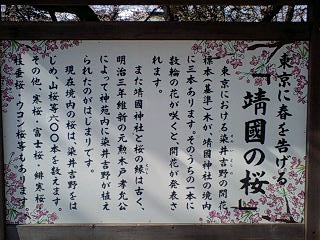 東京に春を告げる
「靖國の桜」
東京における染井吉野の開花
標本（基準）木が、靖國神社の境内
に三本あります。そのうちの一本に
数輪の花が咲くと「開花」が発表さ
れます。
また靖國神社と桜の縁は古く、
明治三年維新の元勲木戸孝允公
によって神苑内に染井吉野が植え
られたのがはじまりです。
現在境内の桜は、染井吉野をは
じめ、山桜等六〇〇本を数えます。
その他、寒桜、富士桜、緋寒桜
枝垂桜、ウコン桜等もあります。